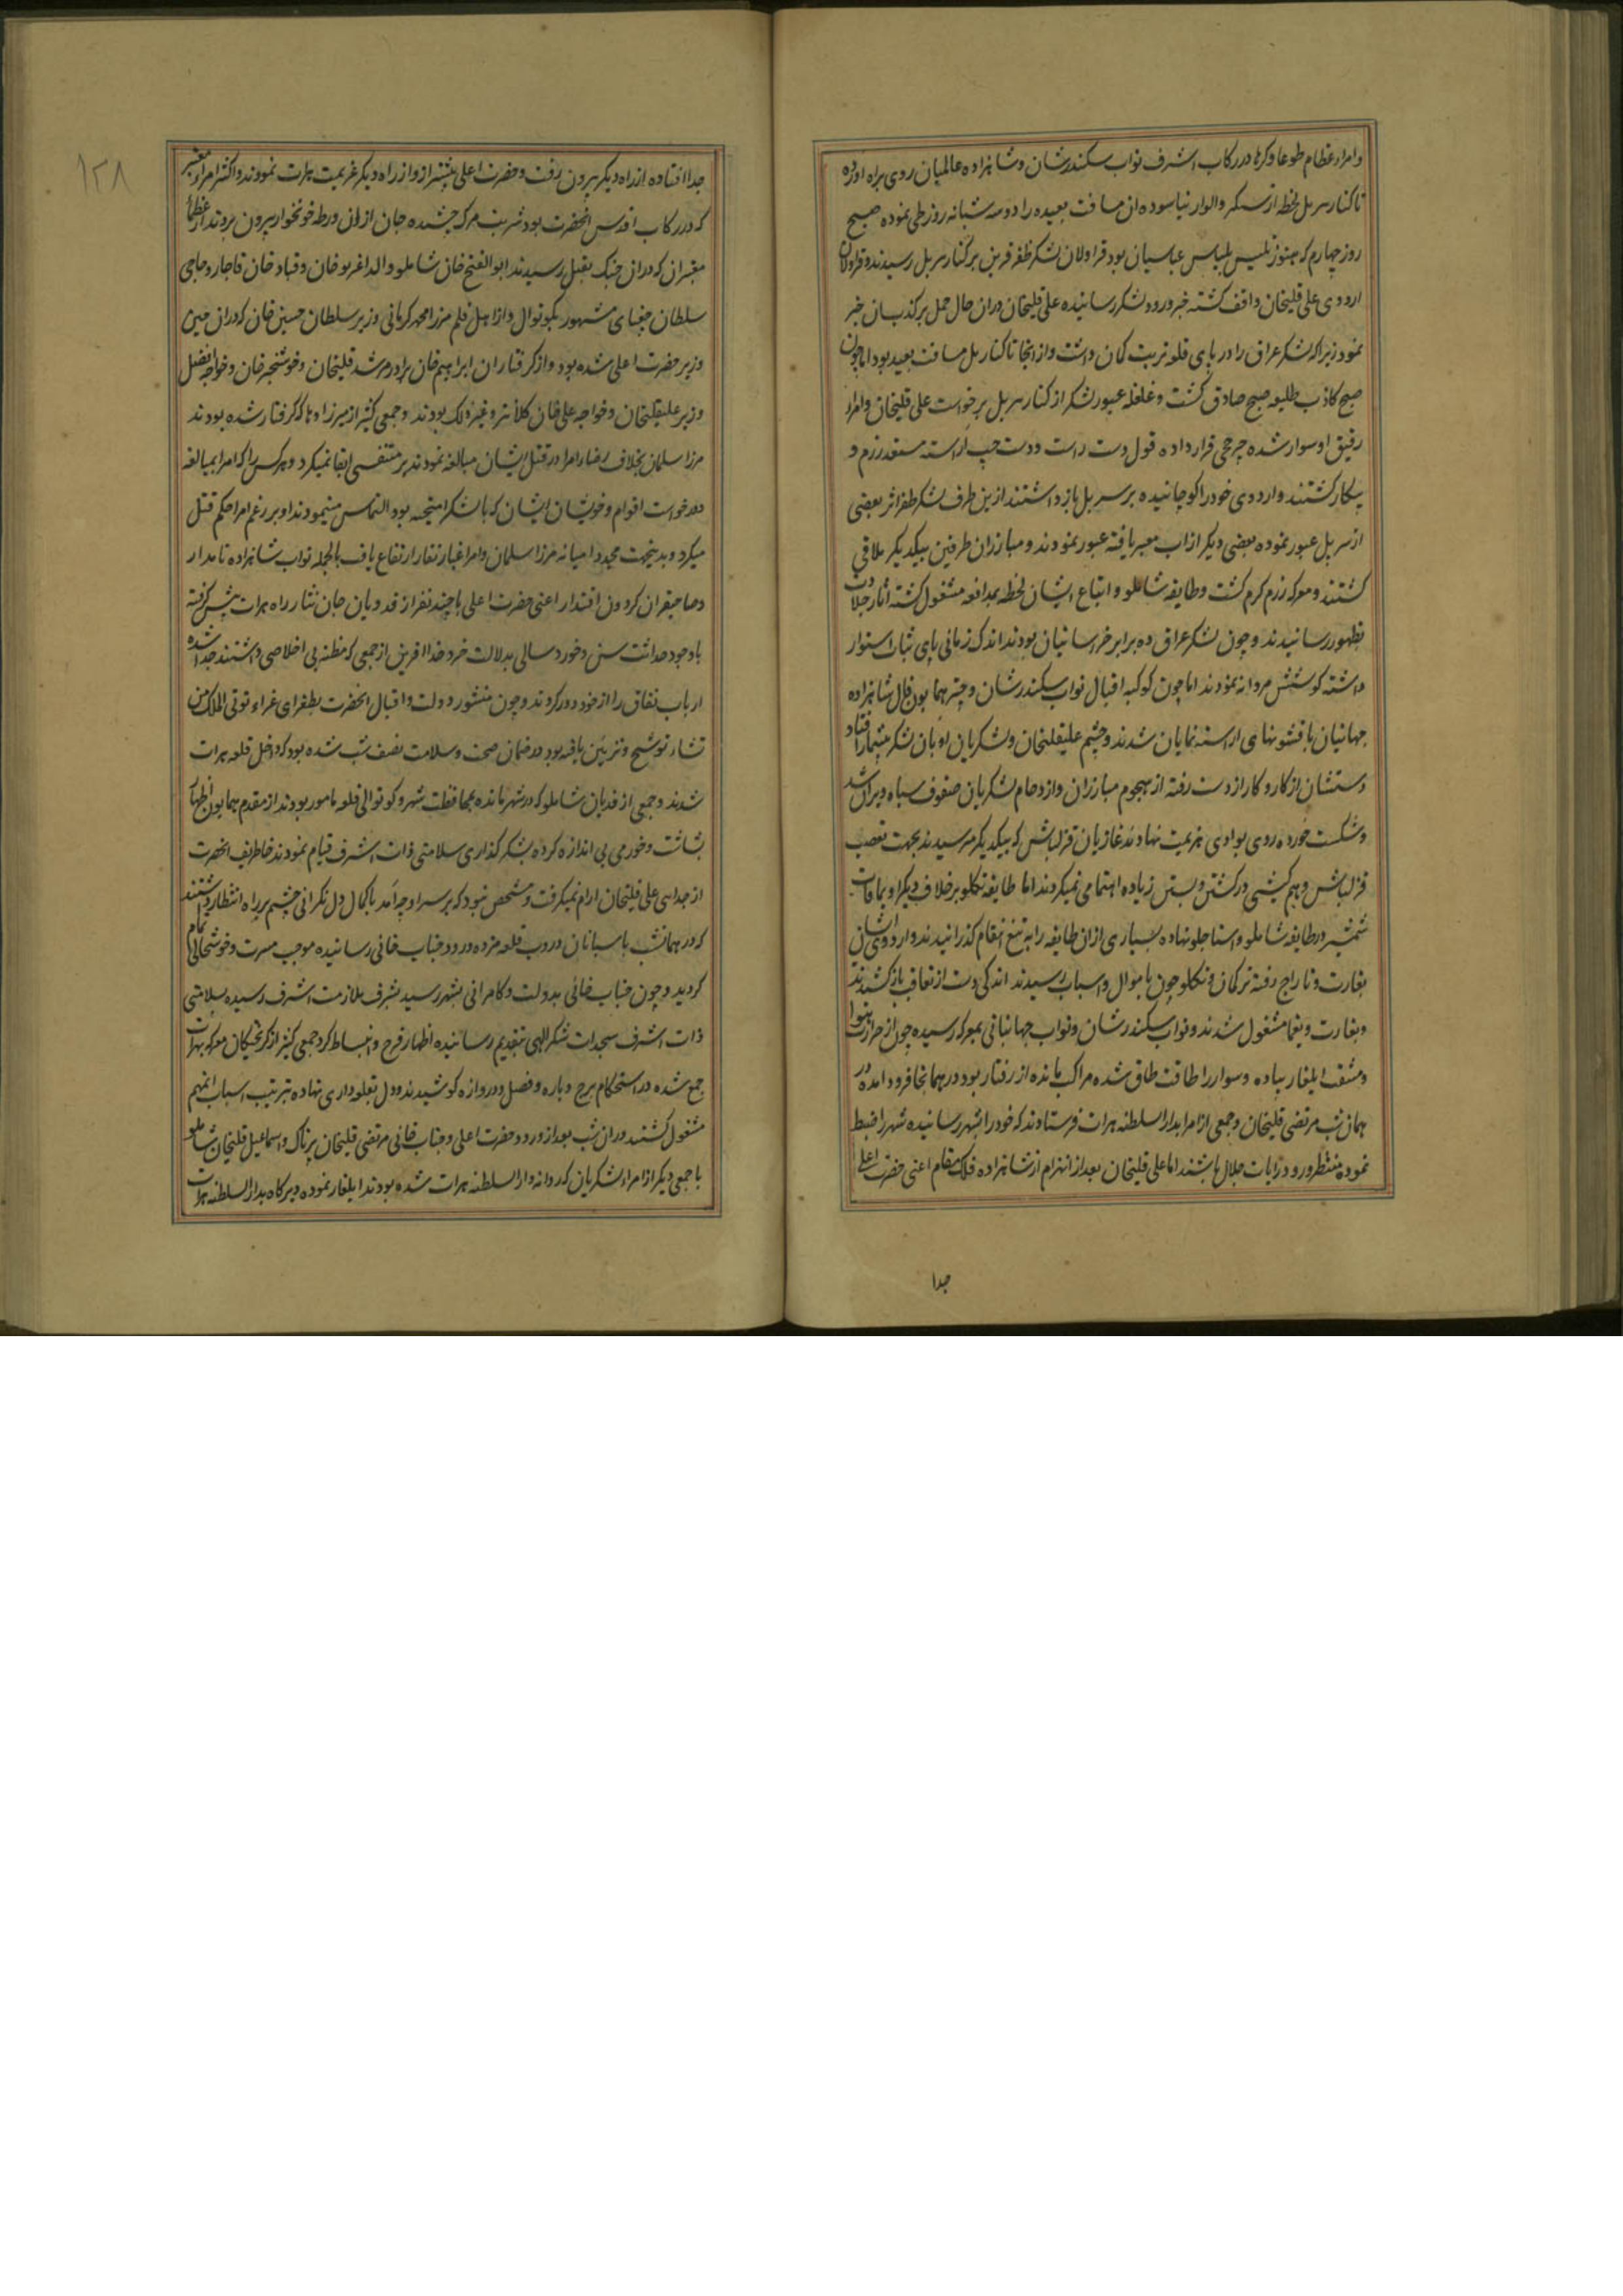 وامراء عظام طوعا و کرها در رکاب اشرف نواب سکندرشان و شاهزاده عالمیان روی براه اورده
تا کنار سر پل لحظه از سیر والوار نیاسوده ان مسافت بعیده را دو سه شبانه روز طی نموده صبح
روز چهارم که هنوز تلبیس بلباس عباسیان بود قراولان لشکر ظفر قرین بر کنار سر پل رسیدند و قراولان
اردوی علی قلیخان واقف کشته خبر ورود لشکر رسانیده علی قلیخان دران حال حمل بر کذب ان خبر
نمود زیرا که لشکر عراق را در پای قلعه تربت کمان داشت و از انجا تا کنار پل مسافت بعید بود اما چون
صبح کاذب طلیعه صبح صادق کشت و غلغله عبور لشکر از کنار سر پل برخواست علی قلیخان وامراء
رفیق او سوار شده چرخچی قرار داده قول و دست راست و دست چپ اراسته مستعد رزم و
پیکار کشتند و اردوی خود را کوچانیده بر سر پل باز داشتند ازین طرف لشکر ظفر اثر بعضی
از سر پل عبور نموده بعضی دیکر از اب معبر یافته عبور نمودند و مبارزان طرفین بیکدیکر ملاقی
کشتند و معرکه رزم کرم کشت و طایفه شاملو و اتباع ایشان لحظه بمدافعه مشغول کشته اثار جلادت
بظهور رسانیدند و چون لشکر عراق ده برابر خراسانیان بودند اندک زمانی پای ثبات استوار
داشته کوشش مردانه نمودند اما چون کوکبه اقبال نواب سکندرشان و چتر همایون فال شاهزاده
جهانیان با قشونهای اراسته نمایان شدند و چشم علیقلیخان و لشکریان او بان لشکر بیشمار افتاد
دستشان از کار و کار از دست رفته از هجوم مبارزان و ازدحام لشکریان صفوف سپاه ویران شد
و شکست خورده روی بوادی هزیمت نهادند غازیان قزلباش که بیکدیکر میرسیدند بجهت تعصب
قزلباش و هم کیشی در کشتن و بستن زیاده اهتمامی نمیکردند اما طایفه تکلو بر خلاف دیکر اویماقات
شمشیر در طایفه شاملو و استاجلو نهاده بسیاری ازان طایفه را به تیغ انتقام کذرانیدند و اردوی ایشان
بغارت و تاراج رفته ترکمان و تکلو چون باموال و اسباب رسیدند اندکی دست از تعاقب باز کشیدند
و بغارت و یغما مشغول شدند و نواب سکندرشان و نواب جهانبانی بمعرکه رسیده چون از حرارت هوا
و مشقت ایلغار پیاده و سوار را طاقت طاق شده مراکب مانده از رفتار بود در همانجا فرود امده در
همان شب مرتضی قلیخان و جمعی از امرا بدار السلطنه هرات فرستادند که خود را بشهر رسانیده شهر را ضبط
نموده منتظر ورود رایات جلال باشند اما علی قلیخان بعد از انهزام از شاهزاده فلک مقام اعنی حضرت اعلی
جدا
۱۲۸
جدا افتاده از راه دیکر بیرون رفت و حضرت اعلی پیشتر از و از راه دیکر عزیمت هرات نمودند و اکثر امراء معتبر
که در رکاب اقدس انحضرت بود شربت مرک چشیده جان ازان ورطه خونخوار بیرون بردند از عظما
معتبران که دران جنک بقتل رسیدند ابو الفتح خان شاملو والد اغربوخان و قباد خان قاجار و حاجی
سلطان مشهور بکوتوال و از اهل قلم مرزا محمد کرمانی وزیر سلطان حسین خان که دران حین
وزیر حضرت اعلی شده بود و از کرفتاران ابراهیم خان برادر مرشد قلیخان و خوشخبر خان و خواجه افضل
وزیر علیقلیخان و خواجه علی خان کلانتر و غیر ذلک بودند و جمعی کثیر از میرزادها که کرفتار شده بودند
مرزا سلمان بخلاف رضاء امرا در قتل ایشان مبالغه نمودند بر متنفسی ابقا نمیکرد و هر کس را که امرا بمبالغه
درخواست اقوام و خویشان ایشان که با لشکر امیخته بود التماس مینمودند او بر رغم امرا حکم قتل
میکرد و بدینجهت مجددا میانه مرزا سلمان و امرا غبار نقار ارتفاع یافت بالجمله نواب شاهزاده نامدار
و صاحبقران کردون اقتدار اعنی حضرت اعلی با چند نفر از فدویان جان نثار راه هرات پیش کرفته
با وجود حداثت سن و خورد سالی بدلالت خرد خدا افرین از جمعی که مظنه بی اخلاصی داشتند جدا شده
ارباب نفاق را از خود دور کردند و چون منشور دولت و اقبال انحضرت بطغرای غراء توتی الملک من
تشاء توشیح و تزیین یافته بود در ضمان صحت و سلامت نصف شب شده بود که داخل قلعه هرات
شدند و جمعی از فدیان شاملو که در شهر مانده بمحافظت شهر و کوتوالی قلعه مامور بودند از مقدم همایون اظهار
بشاشت و خورمی بی اندازه کرده بشکر کذاری سلامتی ذات اشرف قیام نمودند خاطر شریف انحضرت
از جدایی علی قلیخان ارام نمیکرفت و مشخص نبود که بر سر او چه امد با کمال دل نکرانی چشم بر راه انتظار داشتند
که در همانشب پاسبانان دروب قلعه مژده ورود جناب خانی رسانیده موجب مسرت و خوشحالی تمام
کردید و چون جناب خانی بدولت و کامرانی بشهر رسید بشرف ملازمت اشرف رسیده بسلامتی
ذات اشرف سجدات شکر الهی بتقدیم رسانیده اظهار فرح و انبساط کرد جمعی کثیر از کریختکان معرکه بهرات
جمع شده در استحکام برج و باره و فصیل و دروازه کوشیدند و دل بقلعه داری نهاده بترتیب اسباب انمهم
مشغول کشتند دران شب بعد از ورود حضرت اعلی و جناب خانی مرتضی قلیخان پرناک و اسماعیل قلیخان شاملو
با جمعی دیکر از امراء لشکریان که روانه دار السلطنه هرات شده بودند ایلغار نموده دیرکاه بدار السلطنه هرات